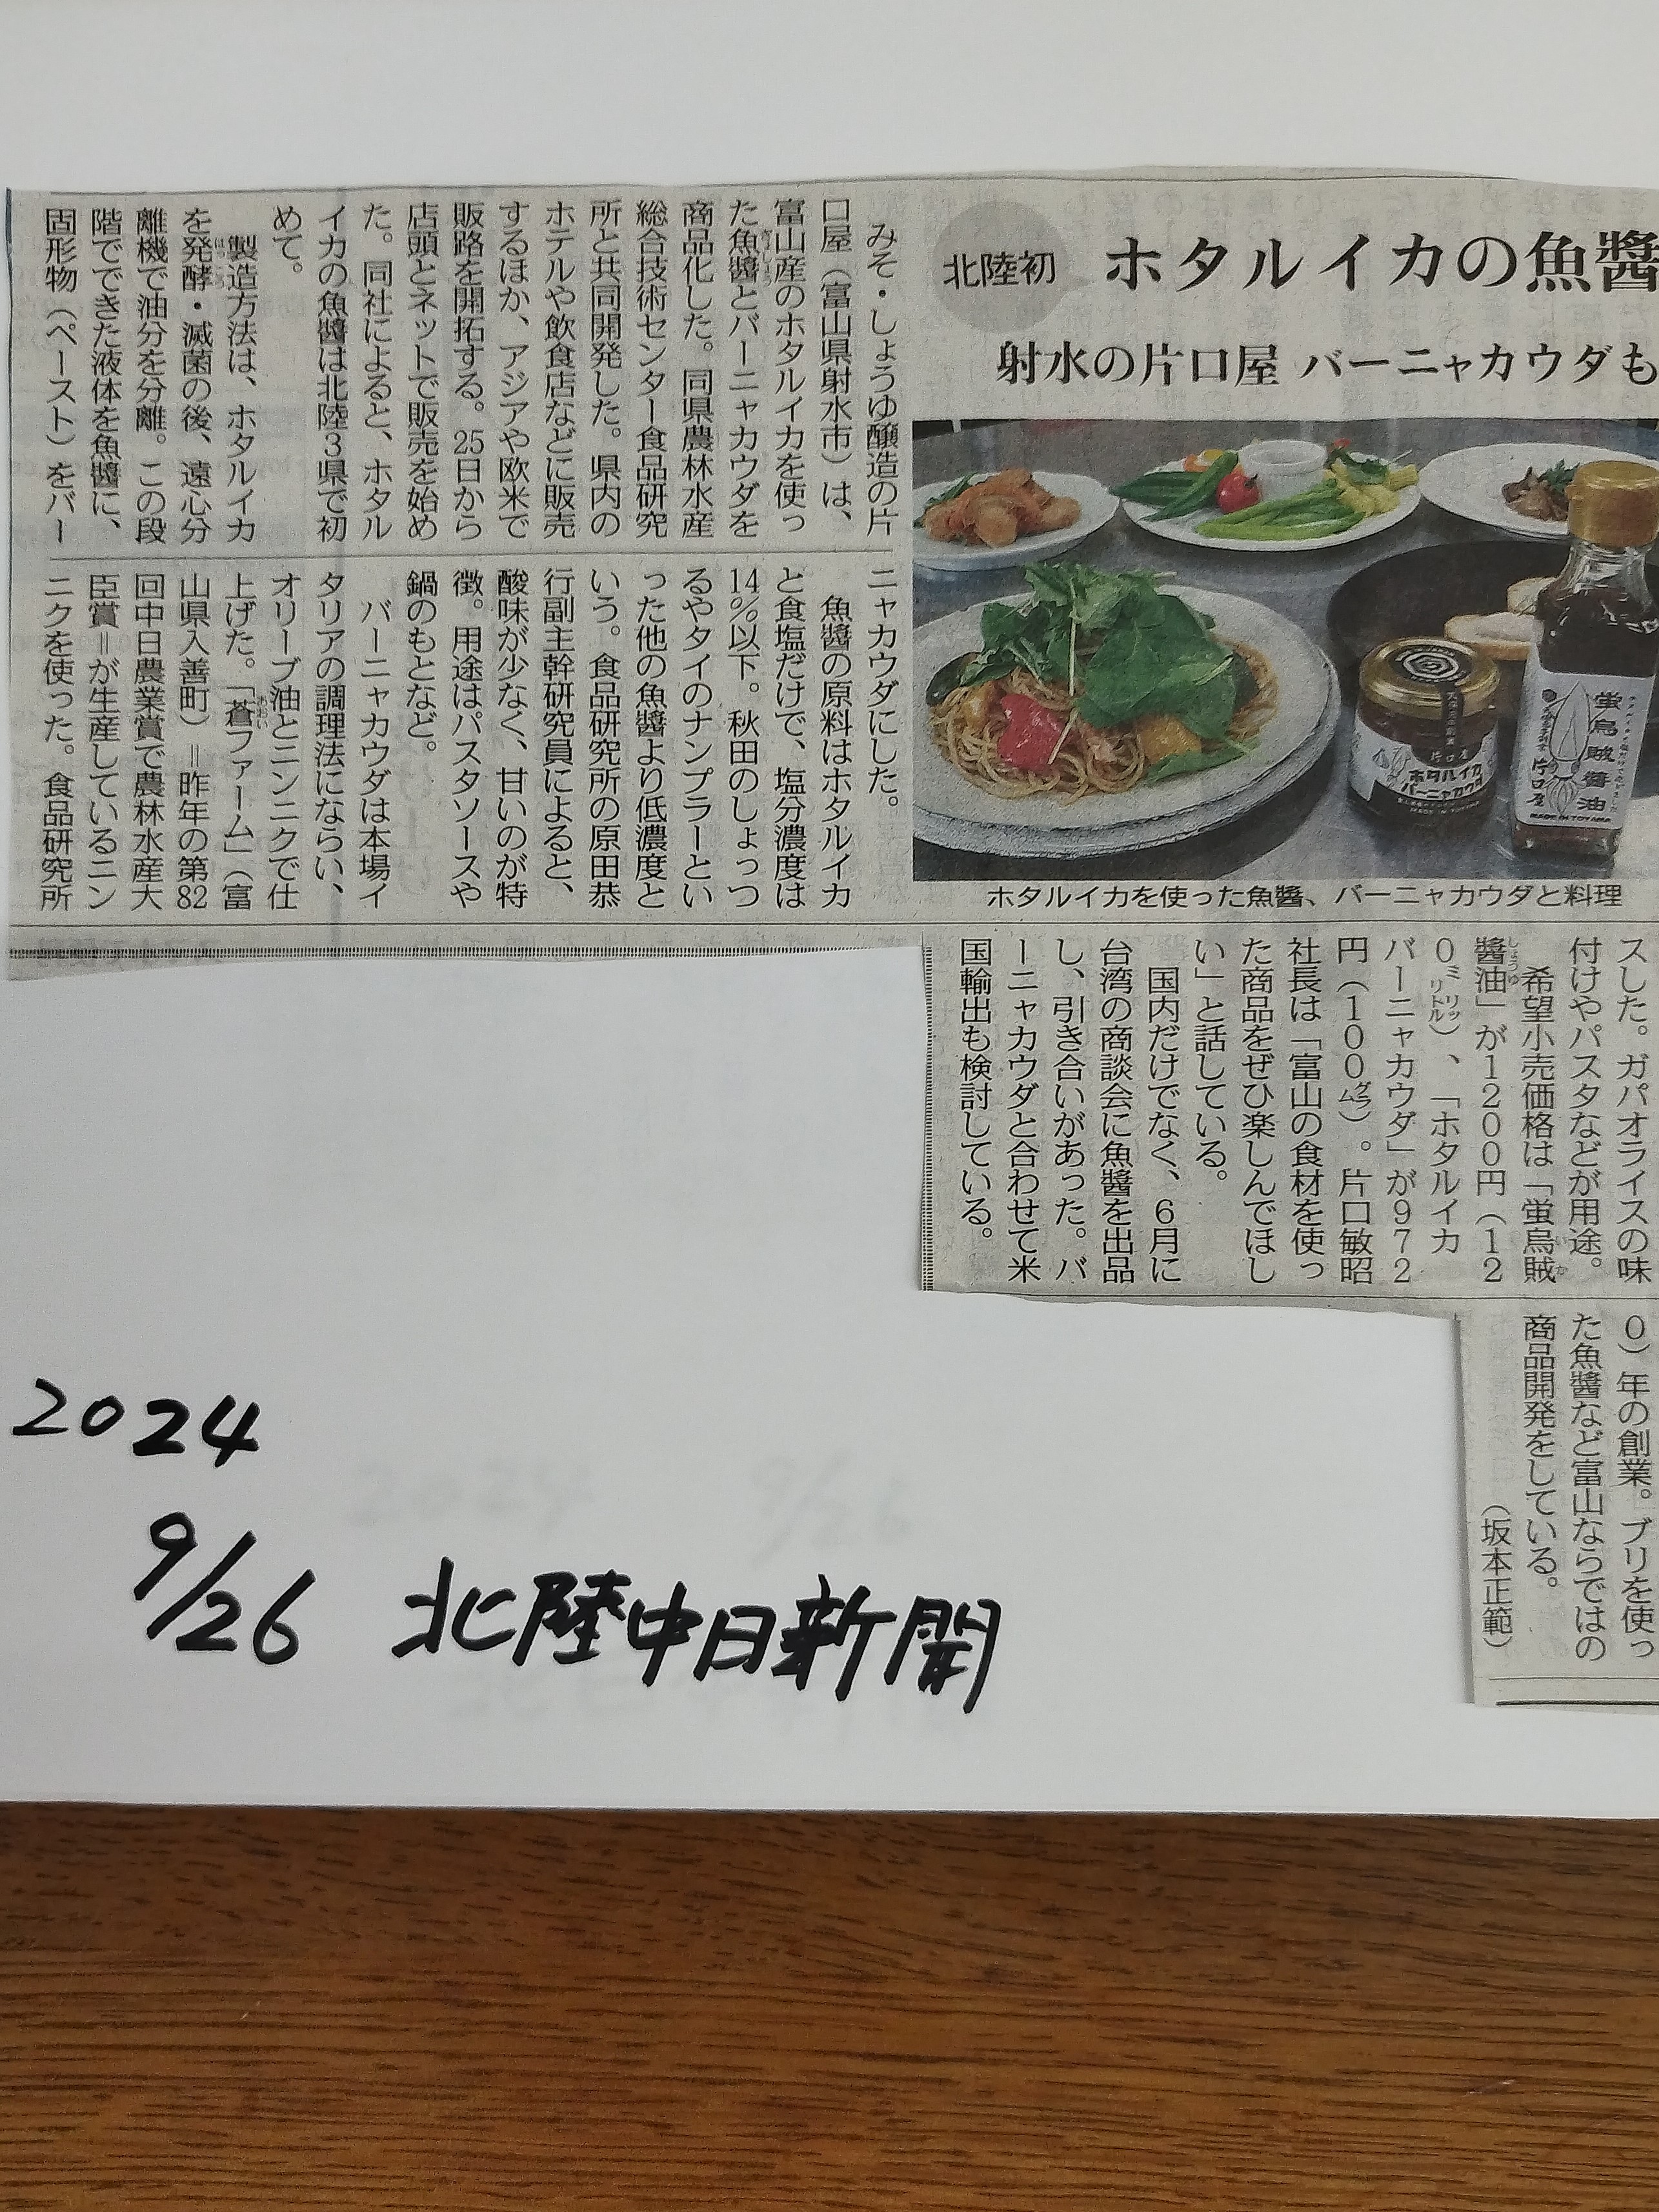 北陸初
ホタルイカの魚醬
射水の片口屋 バーニャカウダも
みそ・しょうゆ醸造の片
口屋（富山県射水市）は、
富山産のホタルイカを使っ
た魚醬とバーニャカウダを
商品化した。同県農林水産
総合技術センター食品研究
所と共同開発した。県内の
ホテルや飲食店などに販売
するほか、アジアや欧米で
販路を開拓する。25日から
店頭とネットで販売を始め
た。同社によると、ホタル
イカの魚醬は北陸3県で初
めて。
製造方法は、ホタルイカ
を発酵・滅菌の後、遠心分
離機で油分を分離。この段
階でできた液体を魚醬に、
固形物（ペースト）をバー
ニャカウダにした。
魚醬の原料はホタルイカ
と食塩だけで、塩分濃度は
14％以下。秋田のしょっつ
るやタイのナンプラーとい
った他の魚醬より低濃度と
いう。食品研究所の原田恭
行副主幹研究員によると、
酸味が少なく、甘いのが特
徴。用途はパスタソースや
鍋のもとなど。
バーニャカウダは本場イ
タリアの調理法にならい、
オリーブ油とニンニクで仕
上げた。「蒼ファーム」（富
山県入善町）＝昨年の第82
回中日農業賞で農林水産大
臣賞＝が生産しているニン
ニクを使った。食品研究所
蛍烏賊醤油
片口屋
MADE IN TOYAMA
片口屋
ホタルイカ
バーニャカウダ
MADE IN TOYAMA
ホタルイカを使った魚醬、バーニャカウダと料理
スした。ガパオライスの味
付けやパスタなどが用途。
希望小売価格は「蛍烏賊
醬油」が1200円（12
0ミリリットル）、「ホタルイカ
バーニャカウダ」が972
円（100グラム）。片口敏昭
社長は「富山の食材を使っ
た商品をぜひ楽しんでほし
い」と話している。
国内だけでなく、6月に
台湾の商談会に魚醬を出品
し、引き合いがあった。バ
ーニャカウダと合わせて米
国輸出も検討している。
0）年の創業。ブリを使っ
た魚醬など富山ならではの
商品開発をしている。
（坂本正範）
2024
9/26 北陸中日新聞